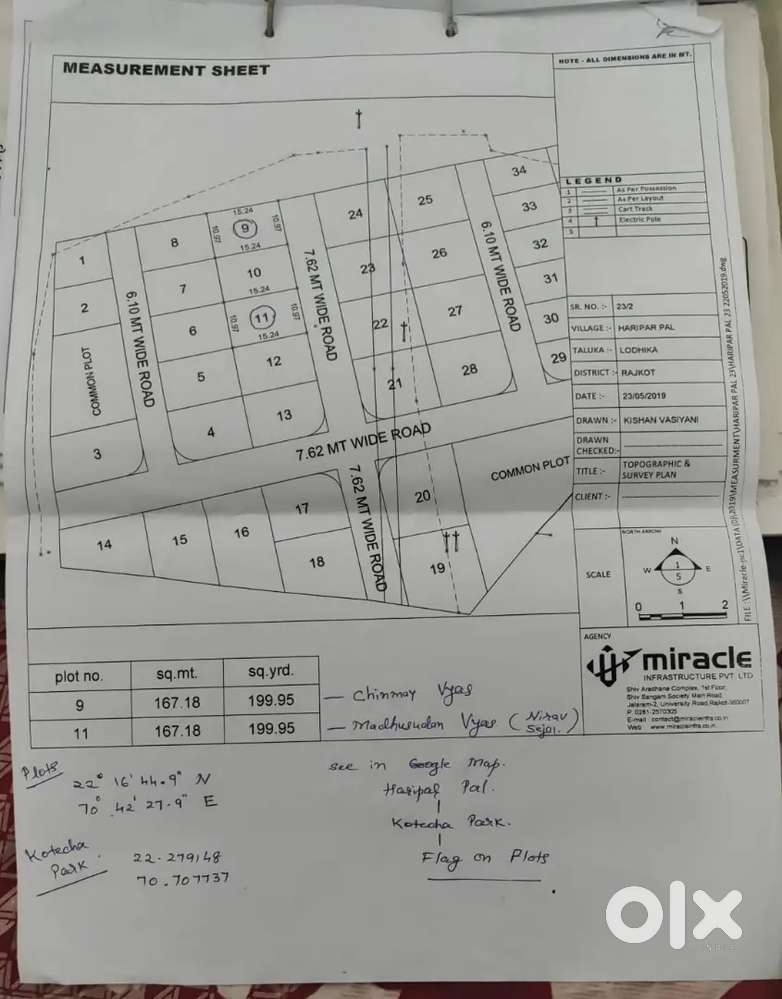 MEASUREMENT SHEET
NOTE - ALL DIMENSIONS ARE IN MT.
LEGEND
1 As Per Possession
2 As Per Layout
3 Cart Track
4 Electric Pole
5
SR. NO. :- 23/2
VILLAGE :- HARIPAR PAL
TALUKA :- LODHIKA
DISTRICT :- RAJKOT
DATE :- 23/05/2019
DRAWN :- KISHAN VASIYANI
DRAWN CHECKED:-
TITLE :- TOPOGRAPHIC & SURVEY PLAN
CLIENT :-
SCALE
NORTH ARROW
N
W 1 E
5
S
0 1 2
AGENCY
miracle
INFRASTRUCTURE PVT. LTD
Shiv Aradhana Complex, 1st Floor,
Shiv Sangam Society Main Road,
Jalaram-2, University Road,Rajkot-360007
P. 0281-2570305
E-mail : contact@miracleinfra.co.in
Web : www.miracleinfra.co.in
34
33
32
31
30
29
25
26
27
28
24
23
22
21
15.24
10.97 9 10.97
15.24
10
15.24
10.97 11 10.97
15.24
12
13
8
7
6
5
4
1
2
COMMON PLOT
3
6.10 MT WIDE ROAD
7.62 MT WIDE ROAD
6.10 MT WIDE ROAD
7.62 MT WIDE ROAD
7.62 MT WIDE ROAD
COMMON PLOT
14
15
16
17
18
20
19
plot no. sq.mt. sq.yrd.
9 167.18 199.95 – Chinmay Vyas
11 167.18 199.95 – Madhusudan Vyas (Nirav Sejal)
Plots
22° 16' 44.9" N
70° 42' 27.9" E
Kotecha Park
22.279148
70.707737
see in Google Map.
Haripal Pal.
Kotecha Park.
Flag on Plots
olx